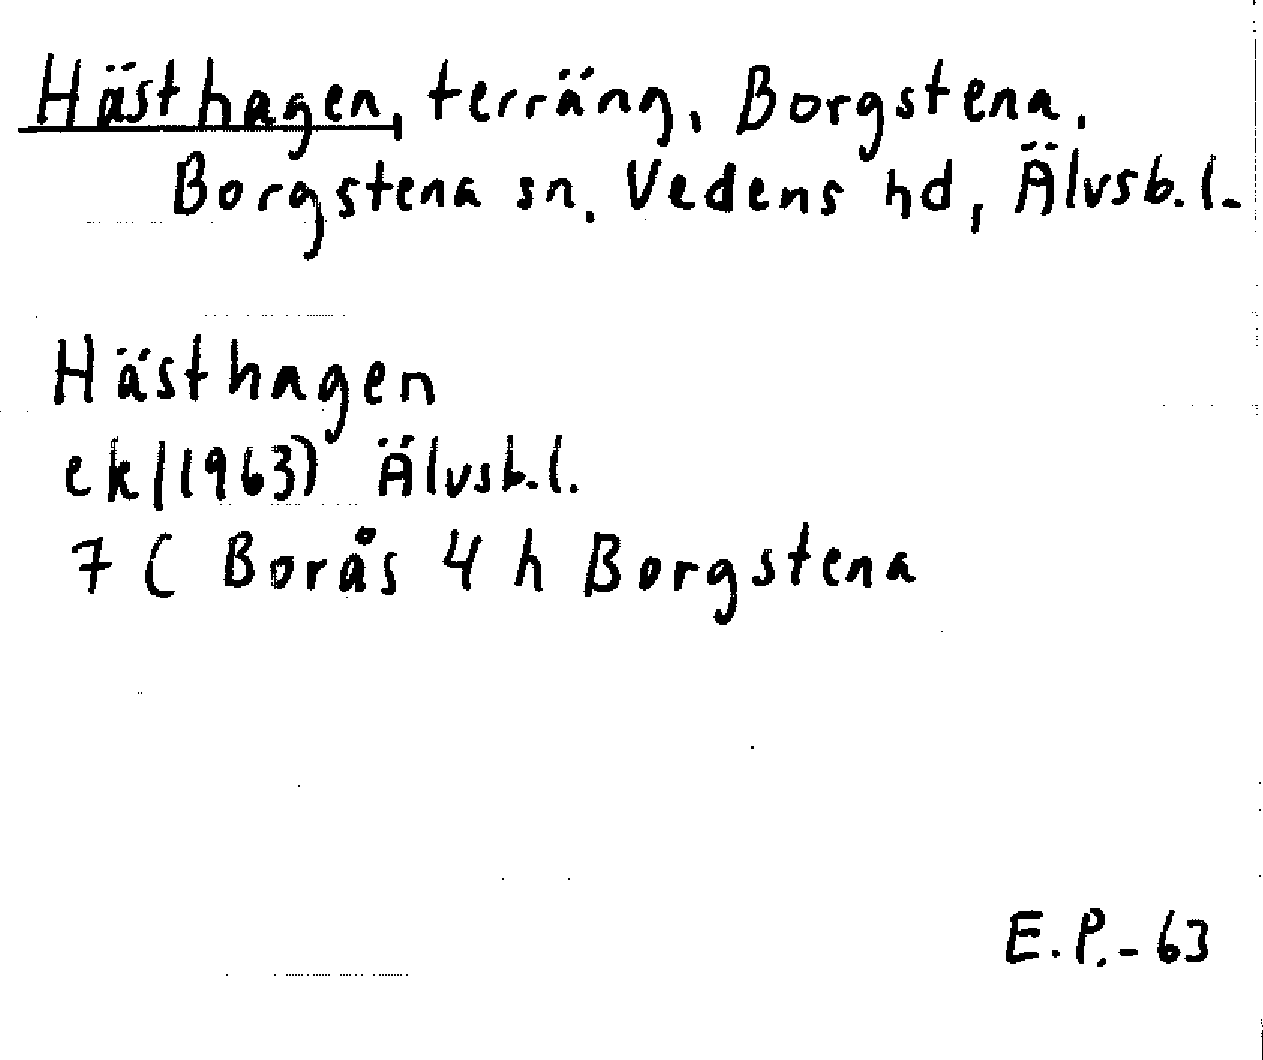 Hästhagen, terräng, Borgstena,
Borgstena sn, Vedens hd, Älvsb.l.
Hästhagen
ek/1963) Älvsb.l.
7C Borås 4 h Borgstena
E.P.-63